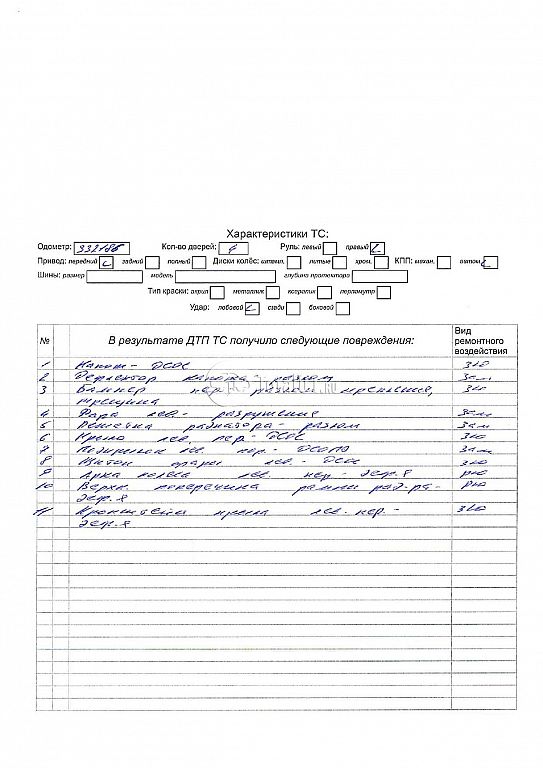 Характеристики ТС:
Одометр: 332186 Кол-во дверей: 4 Руль: левый правый
Привод: передний задний полный Диски колёс: штамп. литые хром. КПП: механ. автом.
Шины: размер модель глубина протектора
Тип краски: акрил металлик ксералик перламутр
Удар: лобовой сзади боковой
№ В результате ДТП ТС получило следующие повреждения: Вид ремонтного воздействия
1 Капот - ЗСОС з10
2 Дефлектор капота разлом зам
3 Бампер пер. разлом крепления, з10
трещина
4 Фара лев. - разрушение зам
5 Решетка радиатора - разлом зам
6 Крыло лев. пер. - ЗСОС з10
7 лев. пер. - зам
8 Щиток фары лев. - з10
9 Арка колеса лев. пер. - деф.я р10
10 Верхн. поперечина рамки рад-ра - р10
деф.я
11 Кронштейн крыла лев. пер. - з10
деф.я